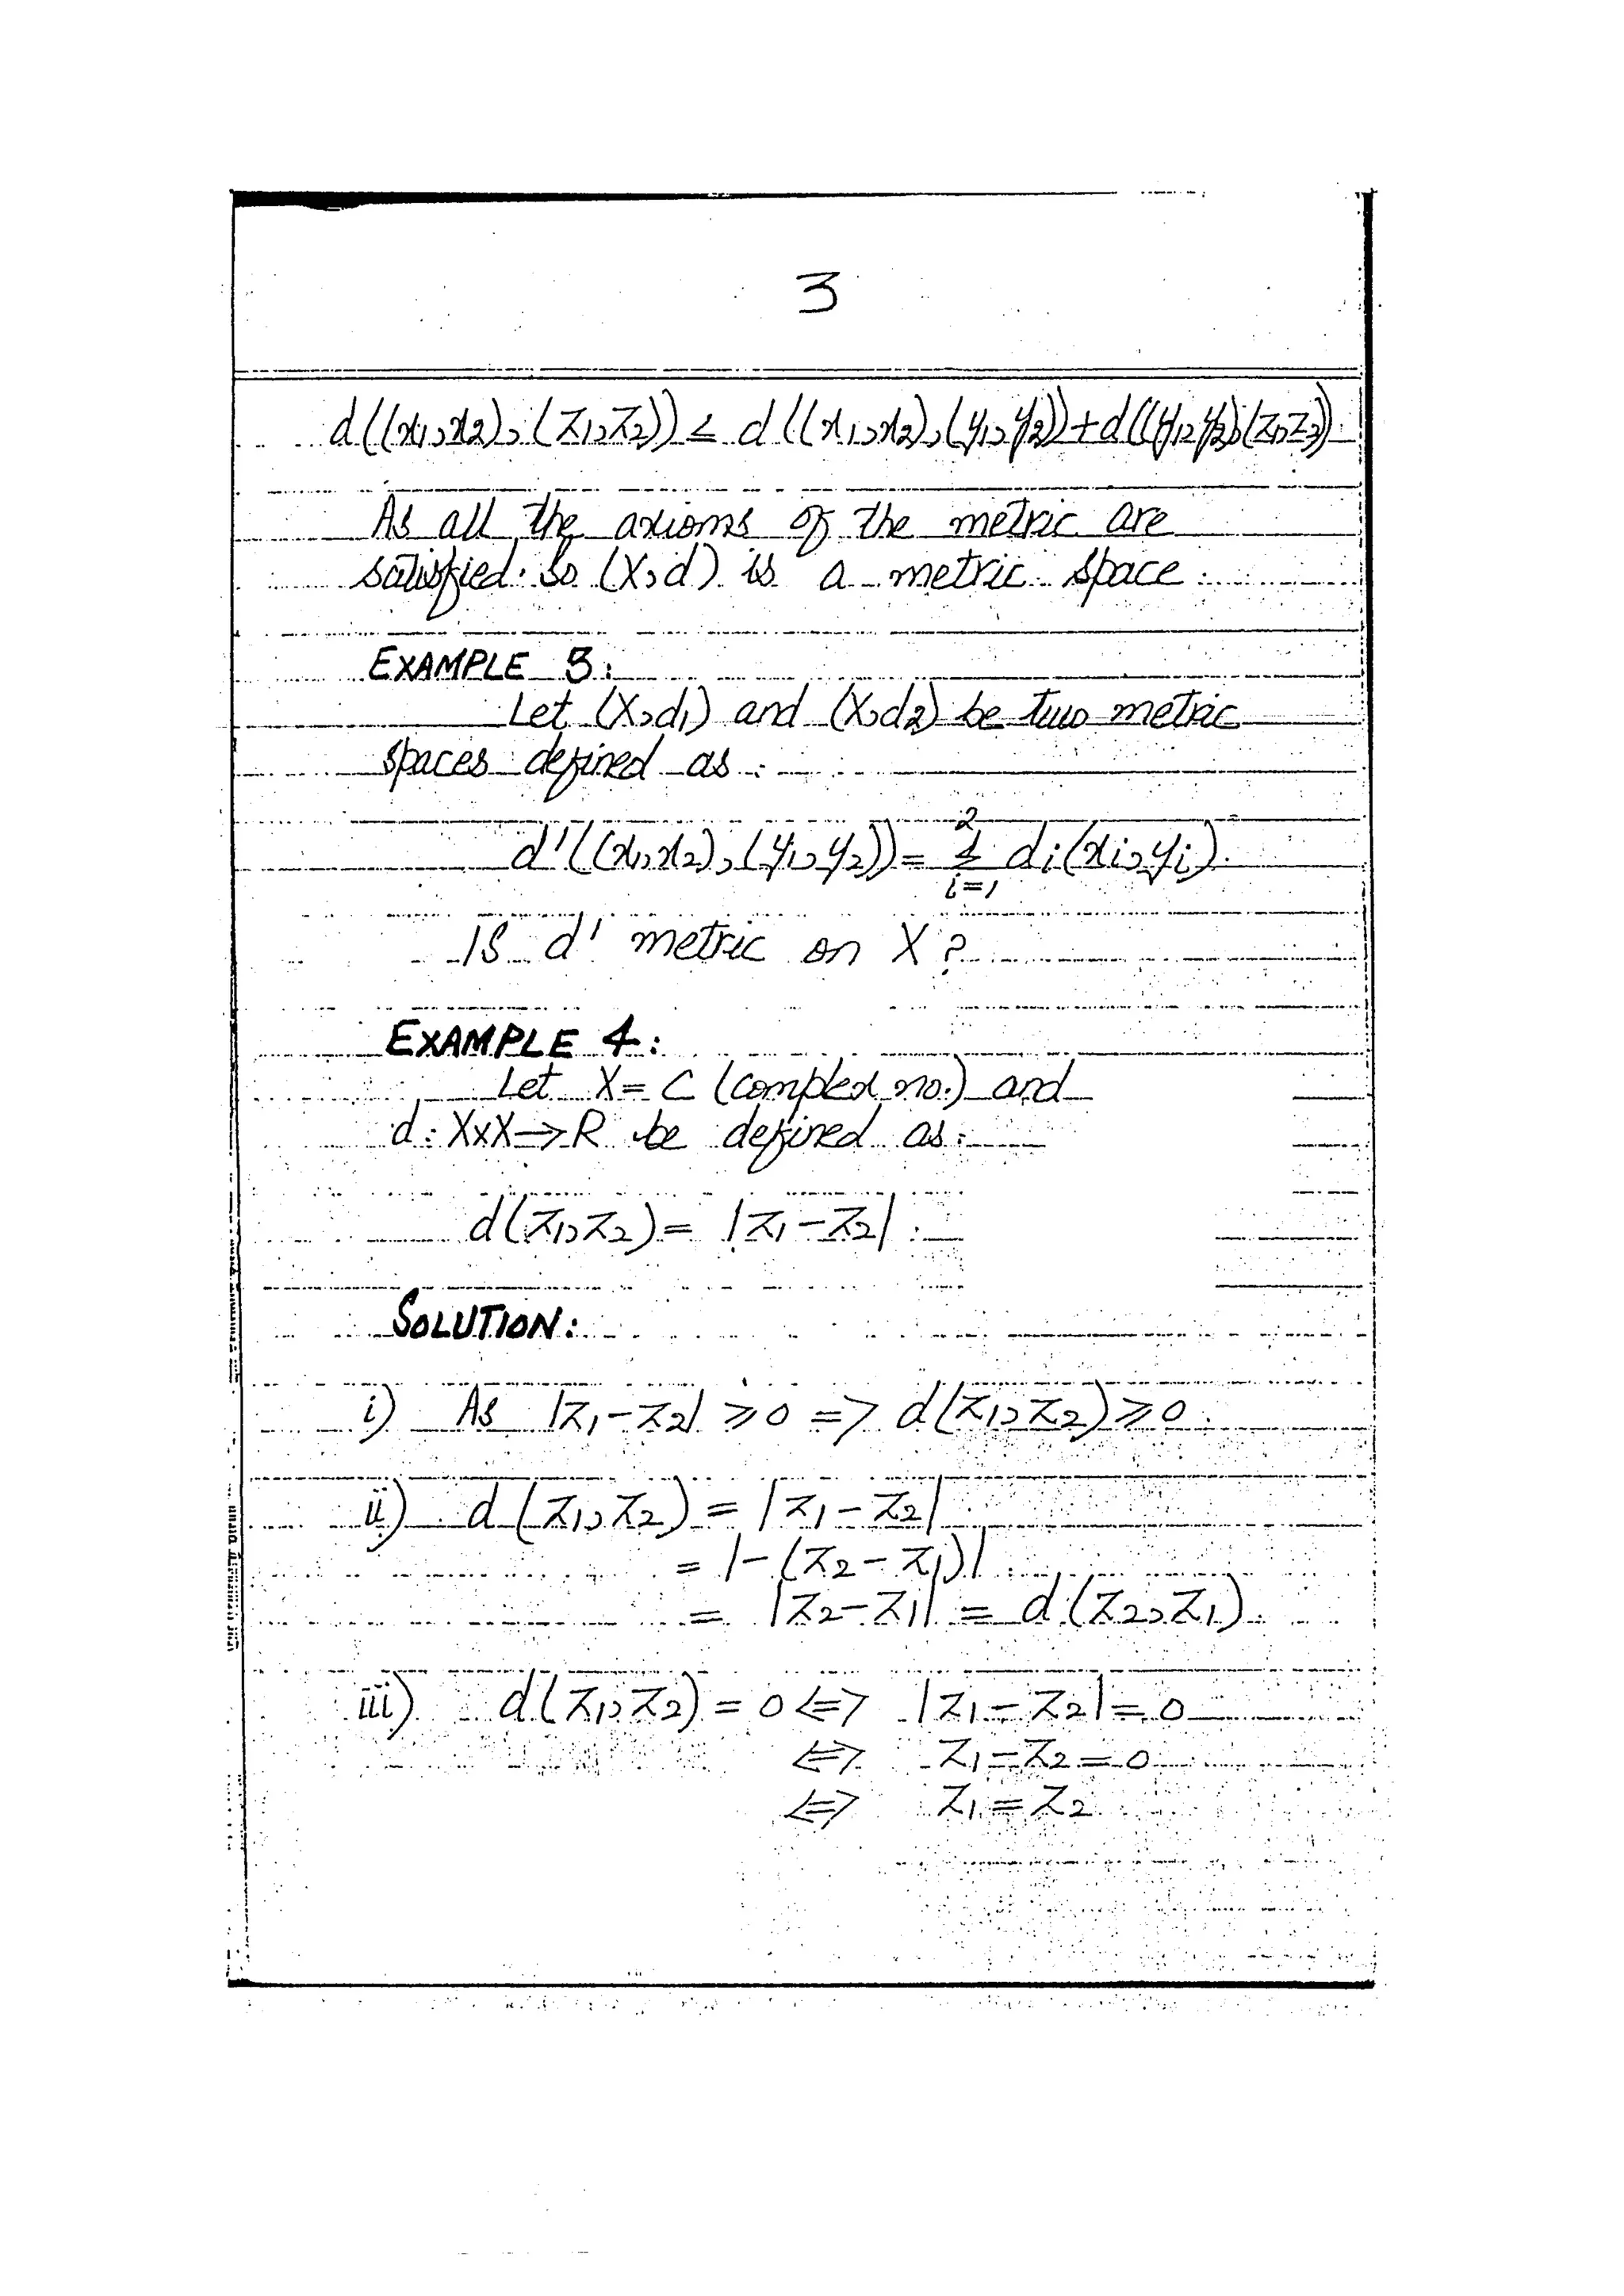 3
d((x₁,x₂),(z₁,z₂)) ≤ d((x₁,x₂),(y₁,y₂))+d((y₁,y₂),(z₁,z₂)).
As all the axioms of the metric are
satisfied. So (X,d) is a metric space.
EXAMPLE 3:
Let (X,d₁) and (X,d₂) be two metric
spaces defined as:
d'((x₁,x₂),(y₁,y₂)) = Σ_{i=1}^{2} dᵢ(xᵢ,yᵢ).
Is d' metric on X?
EXAMPLE 4:
Let X = C (complex no.) and
d: X×X→R be defined as:
d(z₁,z₂) = |z₁-z₂|.
SOLUTION:
i) As |z₁-z₂| ≥ 0 => d(z₁,z₂) ≥ 0.
ii) d(z₁,z₂) = |z₁-z₂|
= |-(z₂-z₁)|
= |z₂-z₁| = d(z₂,z₁).
iii) d(z₁,z₂) = 0 <=> |z₁-z₂| = 0
<=> z₁-z₂ = 0
<=> z₁ = z₂